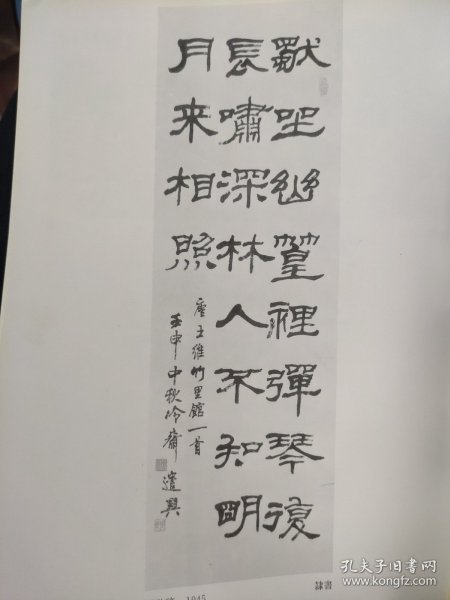 獸坐幽篁裡彈琴復
長嘯深林人不知明
月来相照
唐王維竹里館一首
壬申中秋冷齋遣興
隸書
1945
孔夫子旧书网
www.kongfz.com